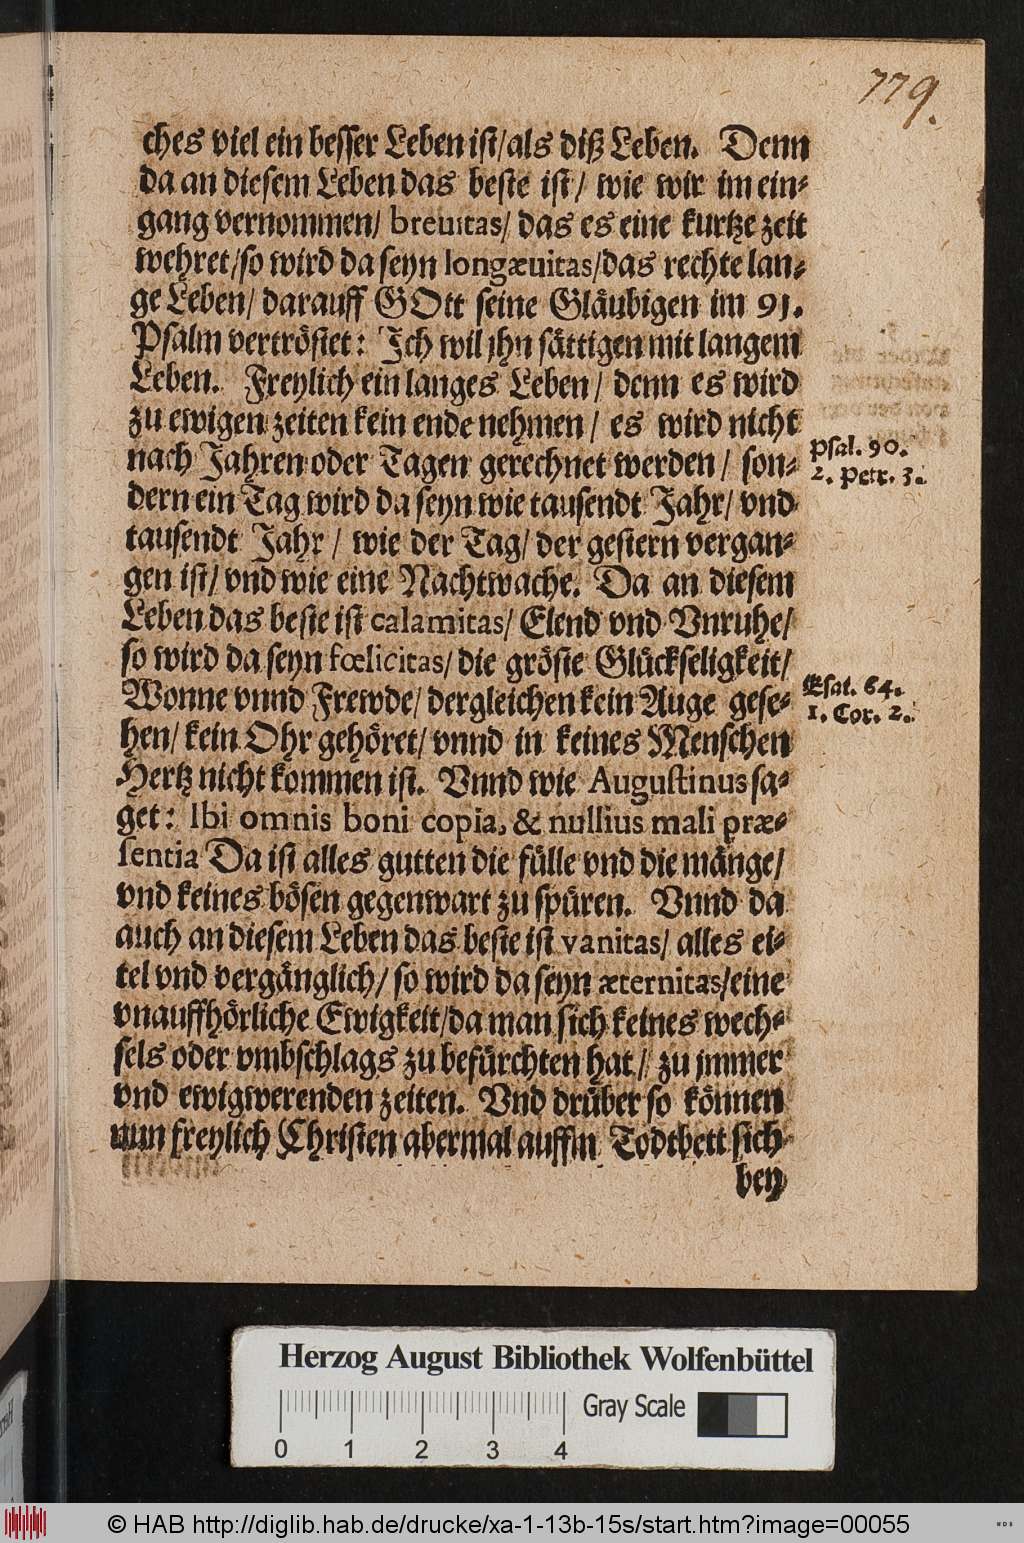 779.
ches viel ein besser Leben ist/als diß Leben. Denn
da an diesem Leben das beste ist/ wie wir im ein-
gang vernommen/ breuitas/ das es eine kurtze zeit
wehret/so wird da seyn longæuitas/das rechte lan-
ge Leben/ darauff GOtt seine Gläubigen im 91.
Psalm vertröstet: Ich wil jhn sättigen mit langem
Leben. Freylich ein langes Leben/ denn es wird
zu ewigen zeiten kein ende nehmen/ es wird nicht
nach Jahren oder Tagen gerechnet werden/ son-
Psal. 90.
2. Petr. 3.
dern ein Tag wird da seyn wie tausendt Jahr/ vnd
tausendt Jahr/ wie der Tag/ der gestern vergan-
gen ist/ vnd wie eine Nachtwache. Da an diesem
Leben das beste ist calamitas/ Elend vnd Vnruhe/
so wird da seyn fœlicitas/ die gröste Glückseligkeit/
Wonne vnnd Frewde/ dergleichen kein Auge gese-
Esai. 64.
1. Cor. 2.
hen/ kein Ohr gehöret/ vnnd in keines Menschen
Hertz nicht kommen ist. Vnnd wie Augustinus sa-
get: Ibi omnis boni copia, & nullius mali præ-
sentia Da ist alles gutten die fülle vnd die mänge/
vnd keines bösen gegenwart zu spüren. Vnnd da
auch an diesem Leben das beste ist vanitas/ alles ei-
tel vnd vergänglich/ so wird da seyn æternitas/eine
vnauffhörliche Ewigkeit/da man sich keines wech-
sels oder vmbschlags zu befürchten hat/ zu jmmer
vnd ewigwerenden zeiten. Vnd drüber so können
nun freylich Christen abermal auffm Todtbett sich
bey
Herzog August Bibliothek Wolfenbüttel
Gray Scale
0 1 2 3 4
© HAB http://diglib.hab.de/drucke/xa-1-13b-15s/start.htm?image=00055